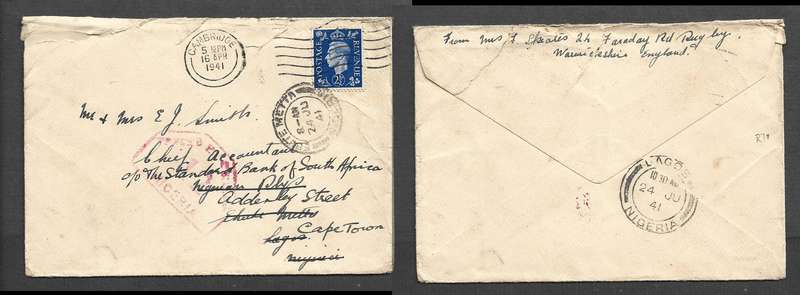 CAMBRIDGE
5 15 PM
16 APR
1941
POSTAGE
REVENUE
2½
EBUTE METTA
8-AM
24 JU
41
Mr & Mrs E J. Smith.
Chief Accountant
c/o The Standard Bank of South Africa
Nigerian Rlys
Adderley Street
Ebute Metta
Cape Town
Lagos
Nigeria
NIGERIA
From Mrs F Speares 24 Faraday Rd Rugby.
Warwickshire England.
LAGOS
10 30 AM
24 JU
41
NIGERIA